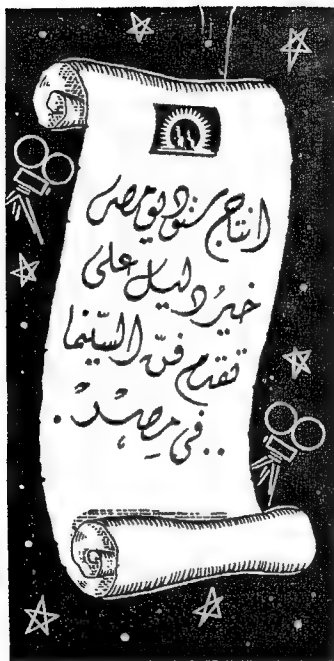 انتاج ستوديو مصر
خير دليل على
تقدم فنّ السّينما
.. فى مصر.